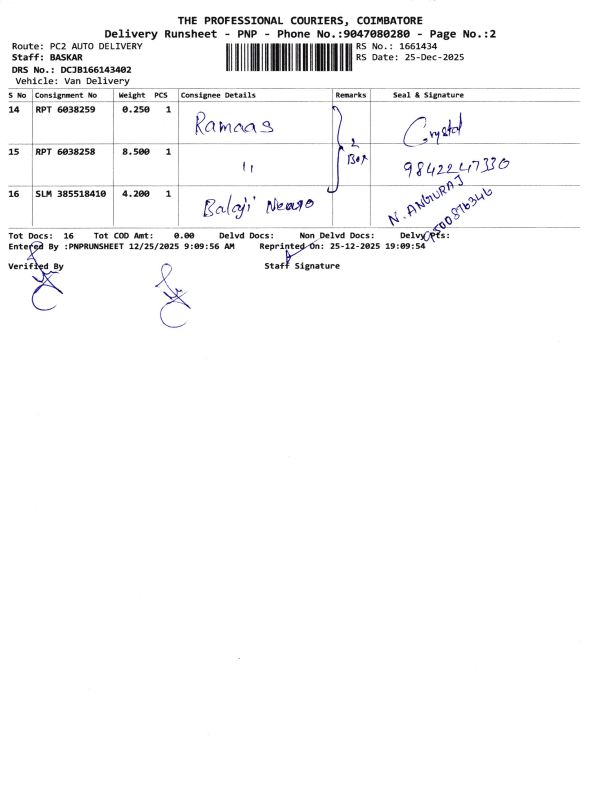 THE PROFESSIONAL COURIERS, COIMBATORE
Delivery Runsheet - PNP - Phone No.:9047080280 - Page No.:2
Route: PC2 AUTO DELIVERY RS No.: 1661434
Staff: BASKAR RS Date: 25-Dec-2025
DRS No.: DCJB166143402
Vehicle: Van Delivery
S No Consignment No Weight PCS Consignee Details Remarks Seal & Signature
14 RPT 6038259 0.250 1 Ramaas Crystal
2
15 RPT 6038258 8.500 1 " Box 9842247330
16 SLM 385518410 4.200 1 Balaji N. ANGURAJ
Tot Docs: 16 Tot COD Amt: 0.00 Delvd Docs: Non Delvd Docs: Delvy Pts:
Entered By :PNPRUNSHEET 12/25/2025 9:09:56 AM Reprinted On: 25-12-2025 19:09:54
Verified By Staff Signature